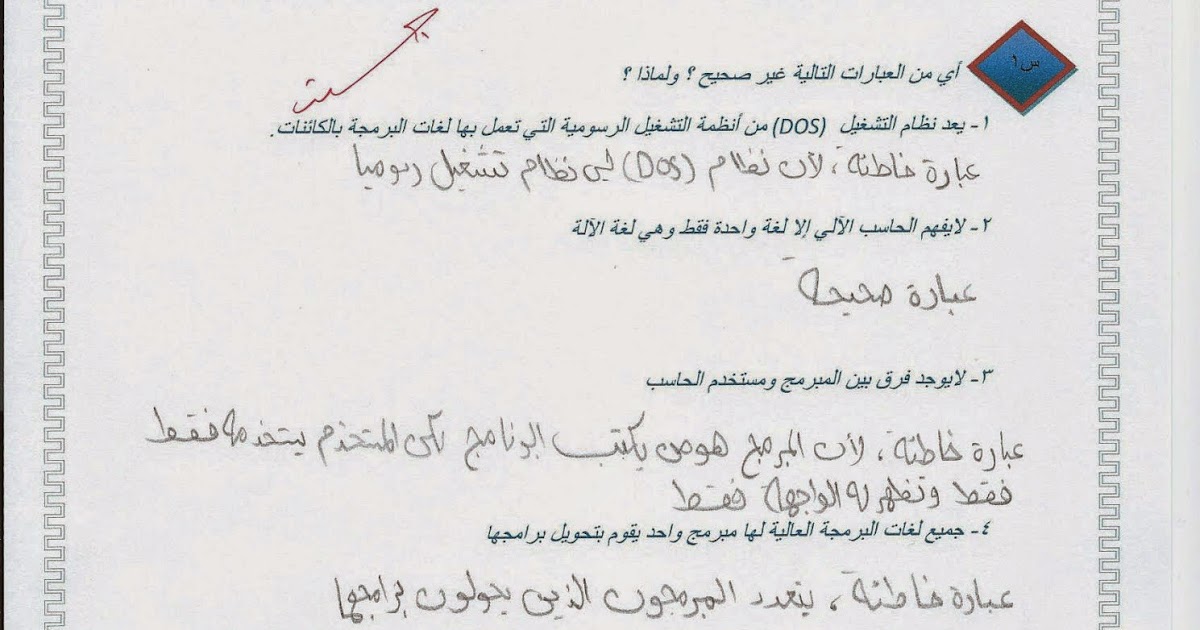 س١
أي من العبارات التالية غير صحيح ؟ ولماذا ؟
١- يعد نظام التشغيل (DOS) من أنظمة التشغيل الرسومية التي تعمل بها لغات البرمجة بالكائنات.
عبارة خاطئة ، لأن نظام (DOS) ليس نظام تشغيل رسوميا
٢- لايفهم الحاسب الآلي إلا لغة واحدة فقط وهي لغة الآلة
عبارة صحيحة
٣- لايوجد فرق بين المبرمج ومستخدم الحاسب
عبارة خاطئة ، لأن المبرمج هو من يكتب البرنامج لكن المستخدم يستخدمه فقط
فقط وتظهر له الواجهة فقط
٤- جميع لغات البرمجة العالية لها مبرمج واحد يقوم بتحويل برامجها
عبارة خاطئة ، يتعدد المبرمجون الذين يحولون برامجها